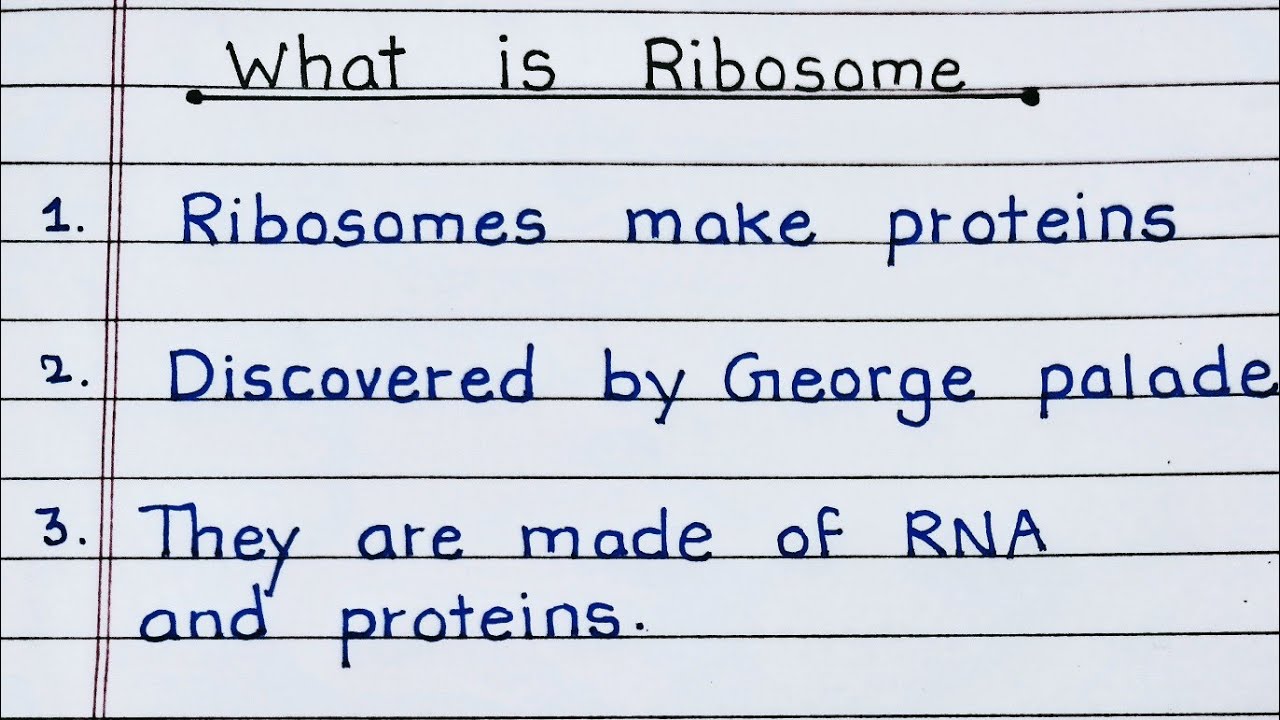 What is Ribosome
1. Ribosomes make proteins
2. Discovered by George palade
3. They are made of RNA
and proteins.